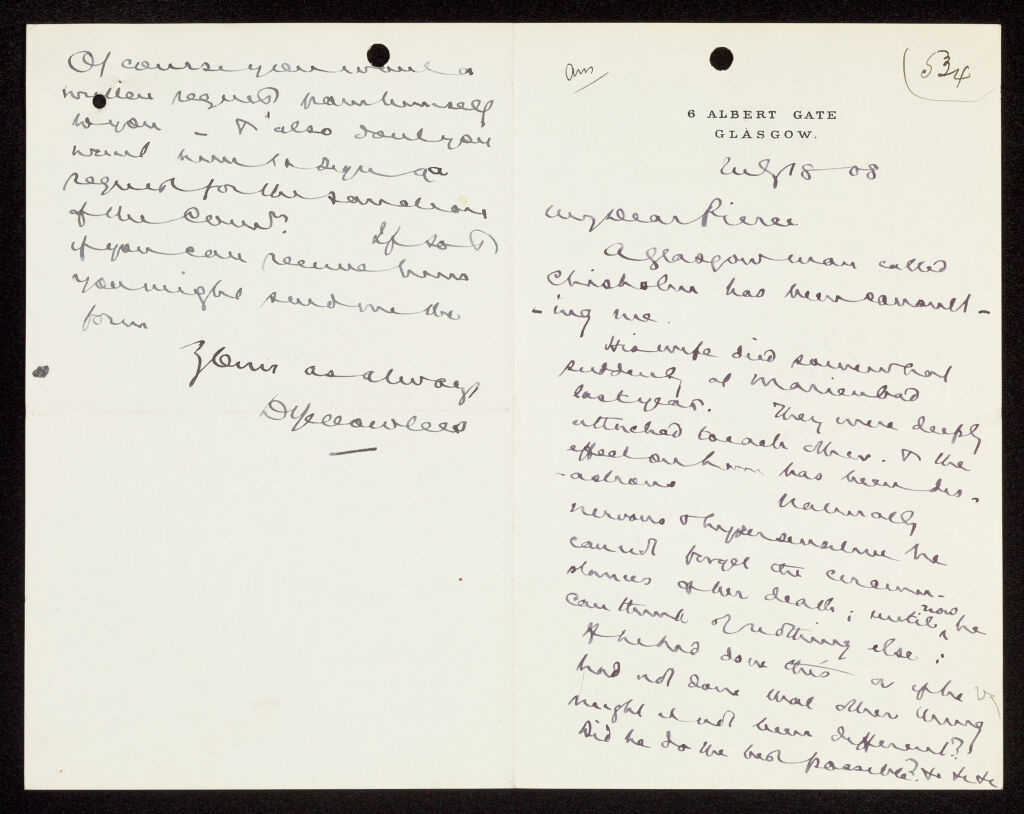 Of course you want a
written request from himself
to you - & also dont you
want him to sign a
request for the sanction
of the Court? If so &
if you can receive him
you might send me the
form
Yours as always
D Yellowlees
ans
534
6 ALBERT GATE
GLASGOW.
July 18 08
My Dear Pierce
A Glasgow man called
Chisholm has been consult-
-ing me.
His wife died somewhat
suddenly at Marienbad
last year. They were deeply
attached to each other. & the
effect on him has been dis-
-astrous Naturally
nervous & hypersensitive he
cannot forget the circum-
stances of her death; until now he
can think of nothing else;
If he had done this or if he
had not done that other thing
might it not been different?
Did he do the best possible? &c &c &c